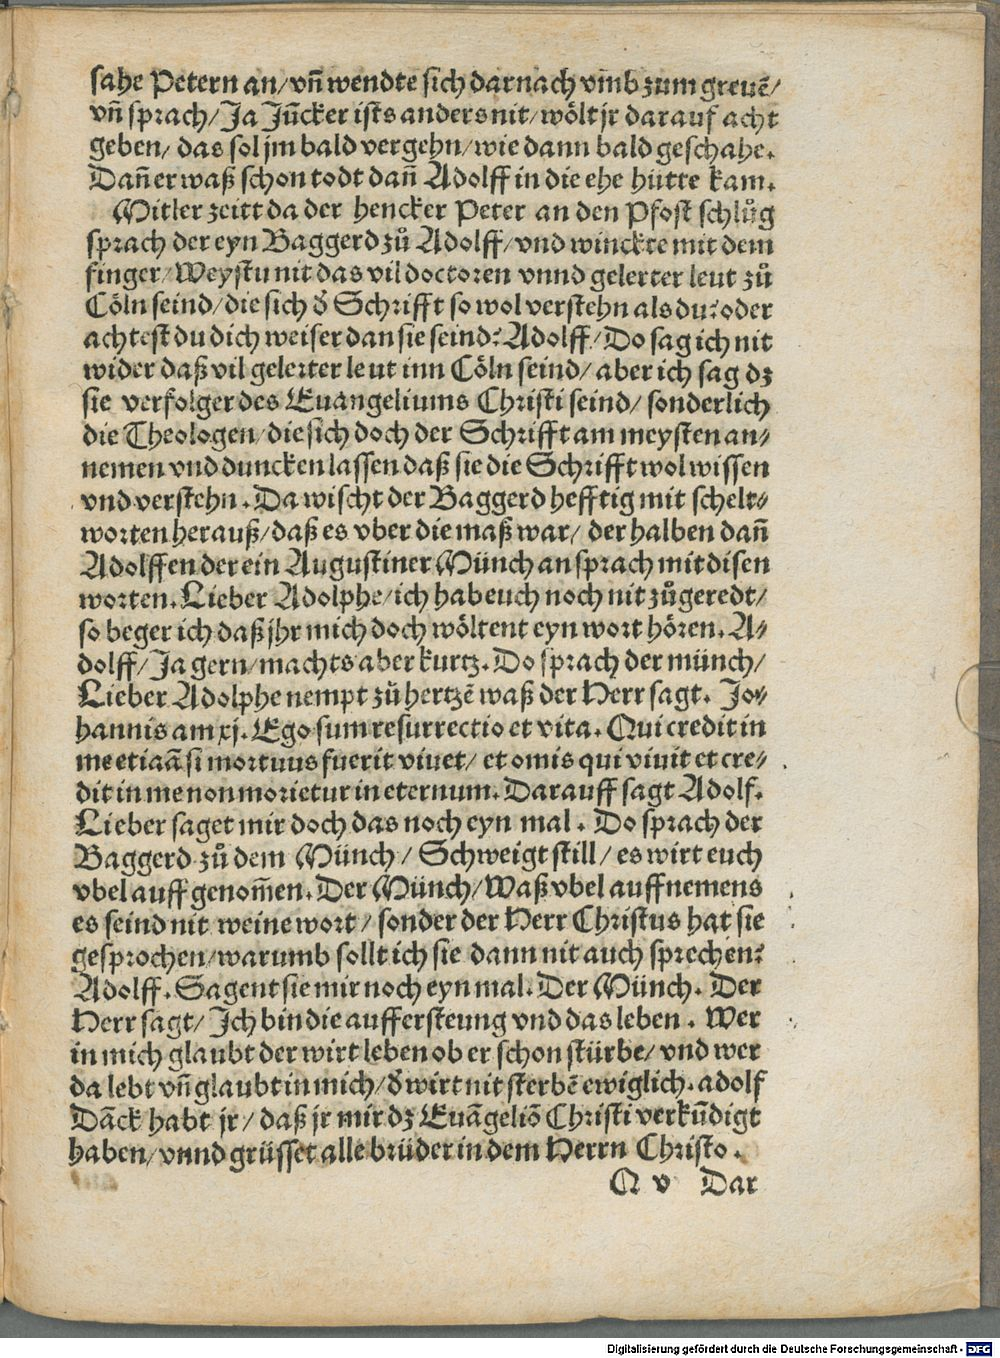 sahe Petern an/ vn̄ wendte sich darnach vm̄b zum greuē/
vn̄ sprach/ Ja Jūcker ists anders nit/ wölt jr darauf acht
geben/ das sol jm bald vergehn/ wie dann bald geschahe.
Dan̄ er waß schon todt dan̄ Adolff in die ehe hütte kam.
Mitler zeitt da der hencker Peter an den Pfost schlůg
sprach der eyn Baggerd zů Adolff/ vnd winckte mit dem
finger/ Weystu nit das vil doctoren vnnd gelerter leut zů
Cöln seind/ die sich d̕ Schrifft so wol verstehn als du? oder
achtest du dich weiser dan sie seind? Adolff/ Do sag ich nit
wider daß vil gelerter leut inn Cöln seind/ aber ich sag dz
sie verfolger des Euangeliums Christi seind/ sonderlich
die Theologen/ die sich doch der Schrifft am meysten an⸗
nemen vnd duncken lassen daß sie die Schrifft wol wissen
vnd verstehn. Da wischt der Baggerd hefftig mit schelt⸗
worten herauß/ daß es vber die maß war/ der halben dan̄
Adolffen der ein Augustiner Münch ansprach mit disen
worten. Lieber Adolphe/ ich hab euch noch nit zůgeredt/
so beger ich daß jhr mich doch wöltent eyn wort hören. A⸗
dolff/ Ja gern/ machts aber kurtz. Do sprach der münch/
Lieber Adolphe nempt zů hertzē waß der Herr sagt. Jo⸗
hannis am xj. Ego sum resurrectio et vita. Qui credit in
me etiaā si mortuus fuerit viuet/ et omis qui viuit et cre⸗
dit in me non morietur in eternum. Darauff sagt Adolf.
Lieber saget mir doch das noch eyn mal. Do sprach der
Baggerd zů dem Münch/ Schweigt still/ es wirt euch
vbel auff genom̄en. Der Münch/ Waß vbel auffnemens
es seind nit weine wort/ sonder der Herr Christus hat sie
gesprochen/ warumb sollt ich sie dann nit auch sprechen?
Adolff. Sagent sie mir noch eyn mal. Der Münch. Der
Herr sagt/ Ich bin die auffersteung vnd das leben. Wer
in mich glaubt der wirt leben ob er schon stürbe/ vnd wer
da lebt vn̄ glaubt in mich/ d̕ wirt nit sterbē ewiglich. adolf
Dāck habt jr/ daß jr mir dz Euāgeliō Christi verkūdigt
haben/ vnnd grüsset alle brüder in dem Herrn Christo.
Q v Dar
Digitalisierung gefördert durch die Deutsche Forschungsgemeinschaft - DFG